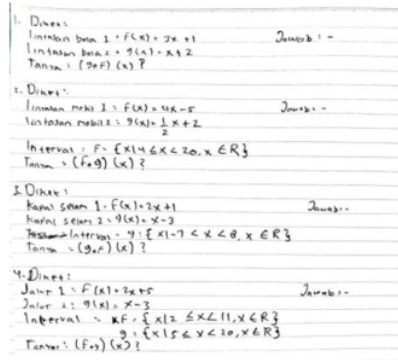 1. Diket:
lintasan bola 1 : f(x) = 2x +1 Jawab : -
lintasan bola 2 : g(x) = x+2
Tanya : (gof) (x) ?
2. Diket :
lintasan mobil 1 : f(x) = 4x-5 Jawab : -
lintasan mobil 2 : g(x) = 1/2 x + 2
Interval : f = {x|4 ≤ x < 20, x ∈ R}
Tanya : (fog) (x) ?
3. Diket :
Kapal selam 1 : f(x) = 2x +1 Jawab : -
Kapal selam 2 : g(x) = x-3
Interval : g : {x|-7 < x < 8, x ∈ R}
Tanya : (gof) (x) ?
4. Diket :
Jalur 1 : f(x) = 2x+5 Jawab : -
Jalur 2 : g(x) = x-3
Interval : f : {x|2 ≤ x < 11, x ∈ R}
g : {x|5 ≤ x < 20, x ∈ R}
Tanya : (fog) (x) ?